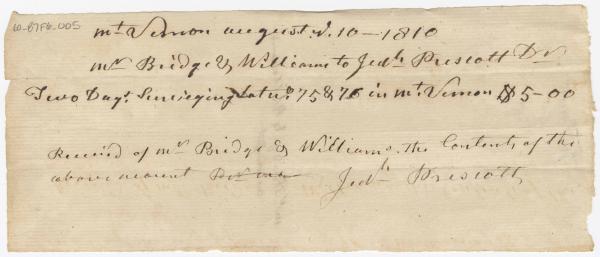 10-87F6-005
mt Vernon august 10 - 1810
mrs Bridge & Williams to Jedh Prescott Dr
Two Days Surveiging Lotn° 75 & 76 in mt Vernon $5-00
Received of mrs Bridge & Williams the Contents of the
above account Jedh Prescott